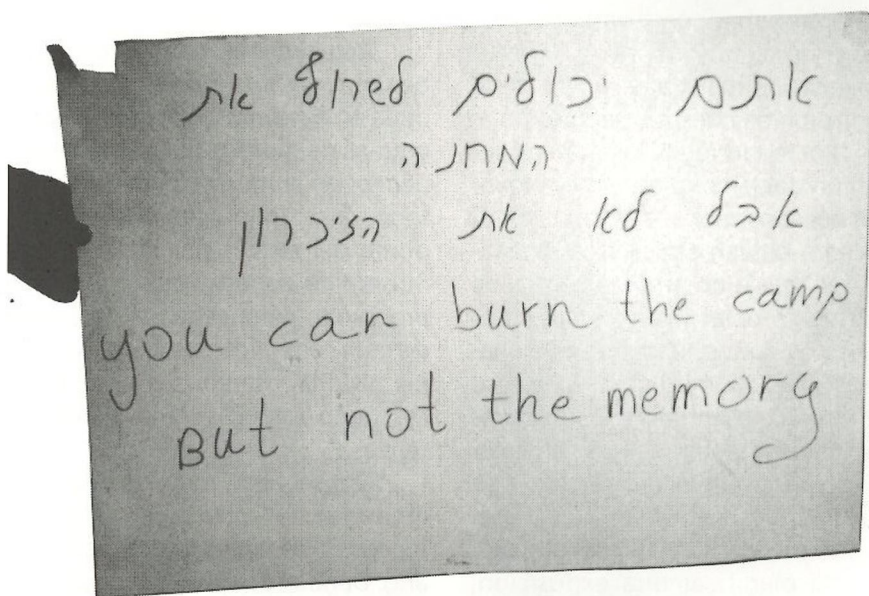 אתם יכולים לשרוף את
המחנה
אבל לא את הזיכרון
you can burn the camp
But not the memory